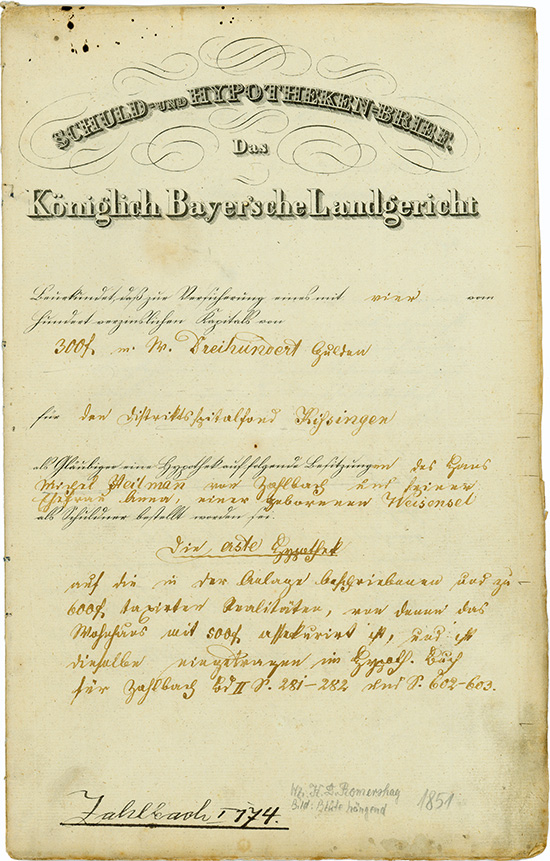 SCHULD- UND HYPOTHEKEN-BRIEF.
Das
Königlich Bayer'sche Landgericht
Beurkundet, daß zur Versicherung eines mit vier vom
Hundert verzinslichen Kapitals von
300f. Dreihundert Gulden
für den Distriktsspitalfond Kissingen
als Gläubiger eine Hypothek auf folgende Besitzungen des Hans
Michel Heilman von Zahlbach und seiner
Ehefrau Anna, einer geborenen Weisensel
als Schuldner bestellt worden sei.
Die erste Hypothek
auf die in der Anlage beschriebenen und zu
600f. taxirten Realitäten, von denen das
Wohnhaus mit 500f. assekurirt ist, und ist
dieselbe eingetragen im Hypoth. Buch
für Zahlbach Bd II S. 281-282 und S. 602-603.
Zahlbach I 174.
Romershag
Bild: Blüte hängend
1851